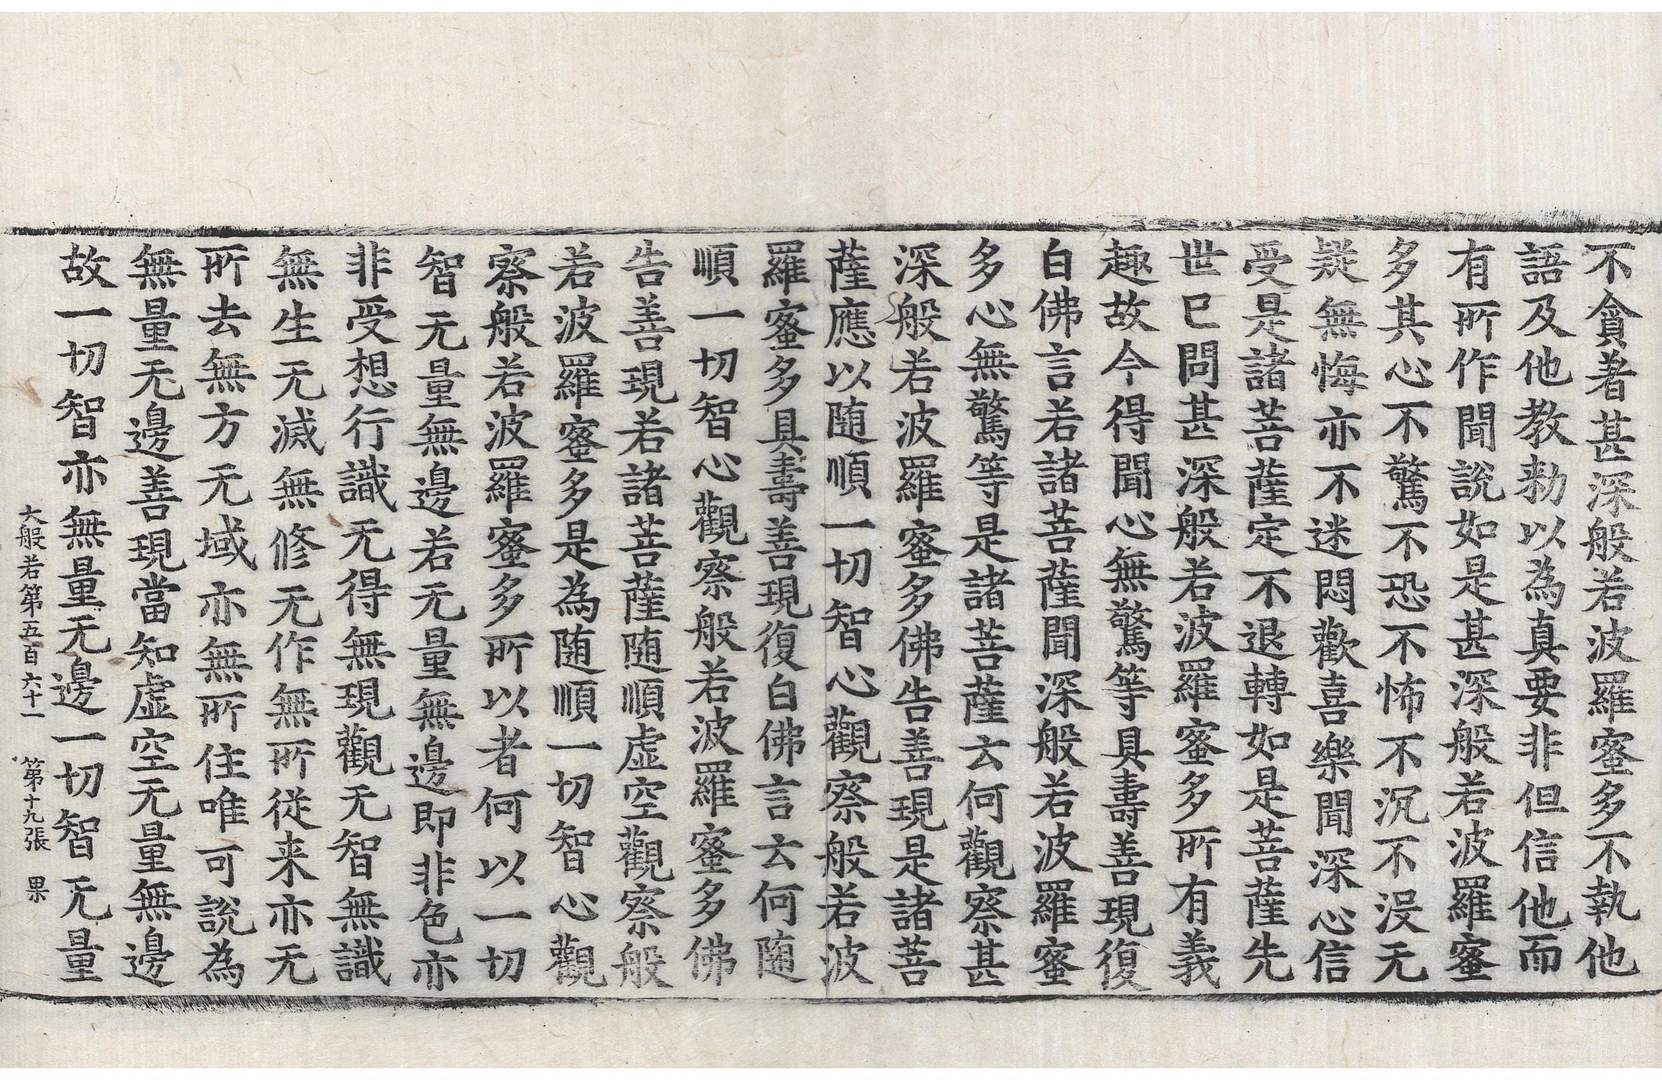 不貪著甚深般若波羅蜜多不執他
語及他教勑以為真要非但信他而
有所作聞說如是甚深般若波羅蜜
多其心不驚不恐不怖不沉不没无
疑無悔亦不迷悶歡喜樂聞深心信
受是諸菩薩定不退轉如是菩薩先
世已問甚深般若波羅蜜多所有義
趣故今得聞心無驚等具壽善現復
白佛言若諸菩薩聞深般若波羅蜜
多心無驚等是諸菩薩云何觀察甚
深般若波羅蜜多佛告善現是諸菩
薩應以随順一切智心觀察般若波
羅蜜多具壽善現復白佛言云何随
順一切智心觀察般若波羅蜜多佛
告善現若諸菩薩随順虚空觀察般
若波羅蜜多是為随順一切智心觀
察般若波羅蜜多所以者何以一切
智无量無邊若无量無邊即非色亦
非受想行識无得無現觀无智無識
無生无滅無修无作無所従来亦无
所去無方无域亦無所住唯可說為
無量无邊善現當知虚空无量無邊
故一切智亦無量无邊一切智无量
大般若第五百六十一 第十九張 果